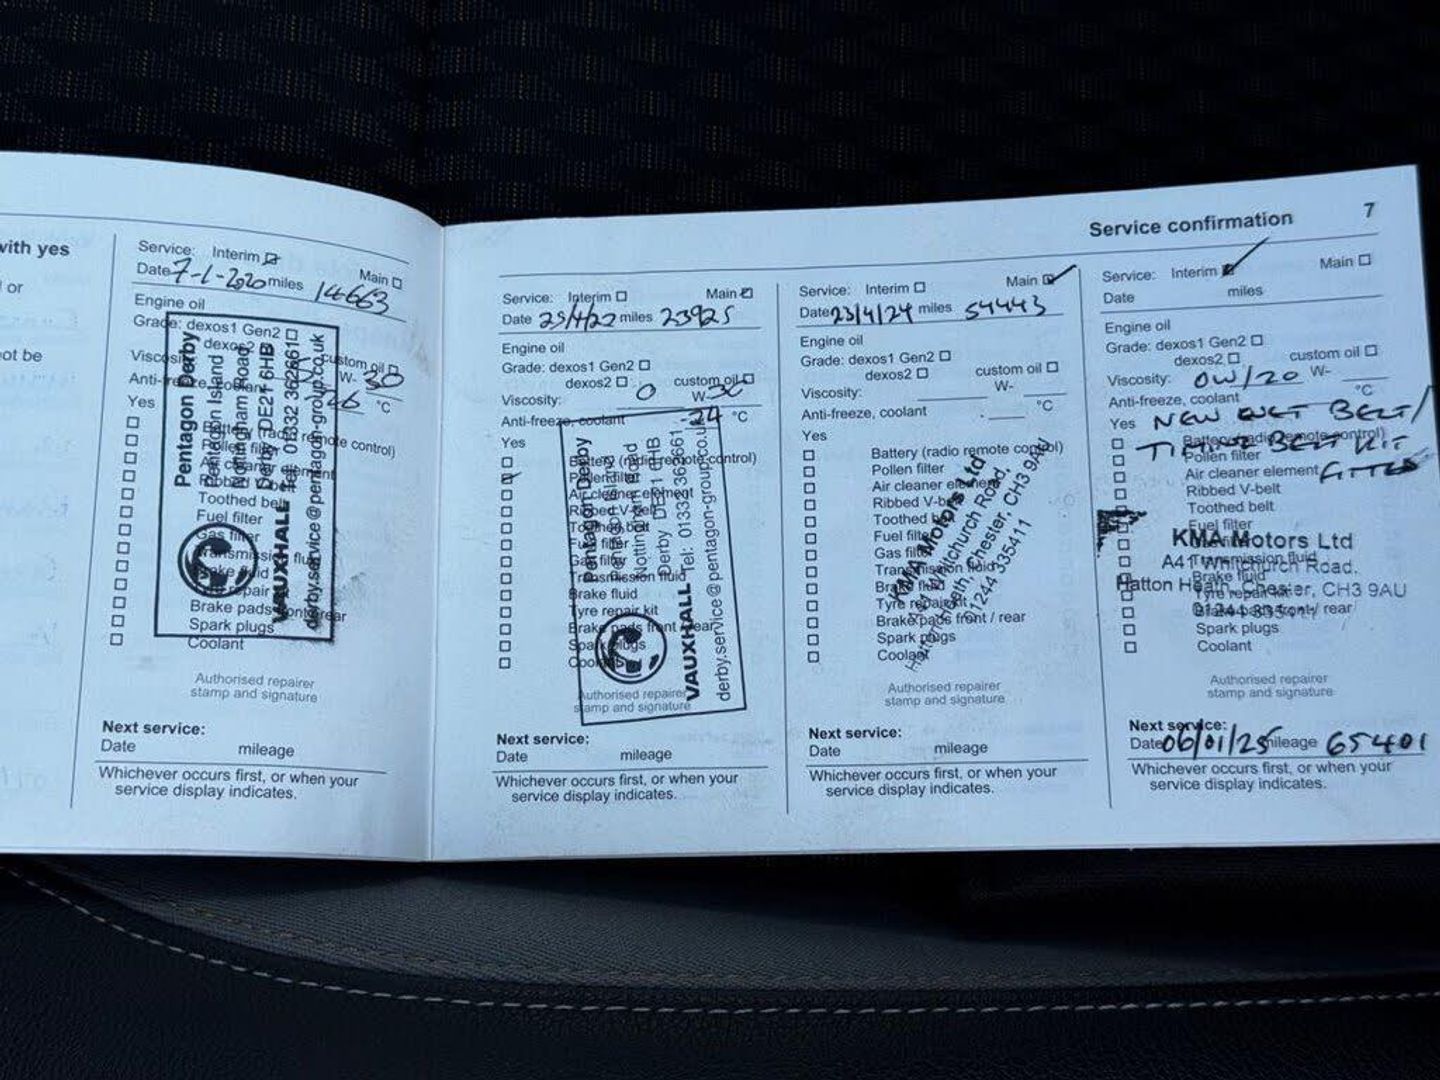 with yes
l or
ot be
Service: Interim Main
Date 7-1-2020 miles 14663
Engine oil
Grade: dexos1 Gen2
dexos2
custom oil
Viscosity: W- 30
Anti-freeze, coolant °C
Yes
Battery (radio remote control)
Pollen filter
Air cleaner element
Ribbed V-belt
Toothed belt
Fuel filter
Gas filter
Transmission fluid
Brake fluid
Tyre repair kit
Brake pads front / rear
Spark plugs
Coolant
Pentagon Derby
Pentagon Island
Nottingham Road
Derby DE21 6HB
VAUXHALL Tel: 01332 362661
derby.service@pentagon-group.co.uk
Authorised repairer
stamp and signature
Next service:
Date mileage
Whichever occurs first, or when your
service display indicates.
Service confirmation 7
Service: Interim Main
Date 25/4/22 miles 23925
Engine oil
Grade: dexos1 Gen2
dexos2 custom oil
Viscosity: 0 W- 30
Anti-freeze, coolant -24 °C
Yes
Battery (radio remote control)
Pollen filter
Air cleaner element
Ribbed V-belt
Toothed belt
Fuel filter
Gas filter
Transmission fluid
Brake fluid
Tyre repair kit
Brake pads front / rear
Spark plugs
Coolant
Pentagon Derby
Pentagon Island
Nottingham Road
Derby DE21 6HB
VAUXHALL Tel: 01332 362661
derby.service@pentagon-group.co.uk
Authorised repairer
stamp and signature
Next service:
Date mileage
Whichever occurs first, or when your
service display indicates.
Service: Interim Main
Date 23/4/24 miles 54443
Engine oil
Grade: dexos1 Gen2
dexos2 custom oil
Viscosity: W-
Anti-freeze, coolant °C
Yes
Battery (radio remote control)
Pollen filter
Air cleaner element
Ribbed V-belt
Toothed belt
Fuel filter
Gas filter
Transmission fluid
Brake fluid
Tyre repair kit
Brake pads front / rear
Spark plugs
Coolant
KMA Motors Ltd
A41 Whitchurch Road,
Hatton Heath, Chester, CH3 9AU
01244 335411
Authorised repairer
stamp and signature
Next service:
Date mileage
Whichever occurs first, or when your
service display indicates.
Service: Interim Main
Date miles
Engine oil
Grade: dexos1 Gen2
dexos2 custom oil
Viscosity: 0W/20 W-
Anti-freeze, coolant °C
Yes NEW WET BELT/
TIMING BELT KIT
FITTED
Battery (radio remote control)
Pollen filter
Air cleaner element
Ribbed V-belt
Toothed belt
Fuel filter
Gas filter
Transmission fluid
Brake fluid
Tyre repair kit
Brake pads front / rear
Spark plugs
Coolant
KMA Motors Ltd
A41 Whitchurch Road.
Hatton Heath, Chester, CH3 9AU
01244 335411
Authorised repairer
stamp and signature
Next service:
Date 06/01/25 mileage 65401
Whichever occurs first, or when your
service display indicates.